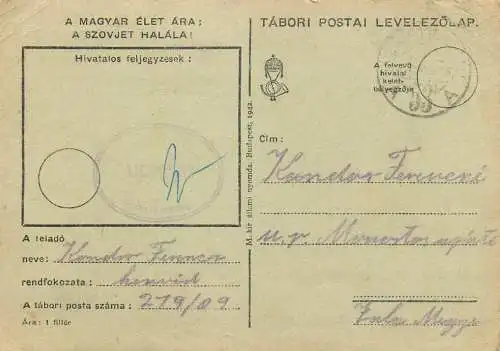 A MAGYAR ÉLET ÁRA:
A SZOVJET HALÁLA!
Hivatalos feljegyzések:
A feladó
neve: Kondor Ferencz
rendfokozata: honvéd
A tábori posta száma: 219/09
Ára: 1 fillér
M. kir. állami nyomda. Budapest, 1942.
TÁBORI POSTAI LEVELEZŐLAP.
A felvevő
hivatal
kelet-
bélyegzője
Cím:
Kondor Ferencné
u. p.
Zala Megye